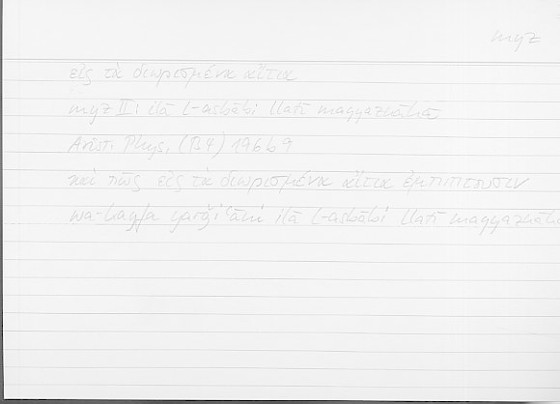 myz
εἰς τὰ διωρισμένα αἴτια
myz II: ilā l-asbābi llatī mayyaznāhā
Arist. Phys. (B4) 196b9
καὶ πῶς εἰς τὰ διωρισμένα αἴτια ἐμπίπτουσιν
wa-kayfa yarǧiʿāni ilā l-asbābi llatī mayyaznāhā